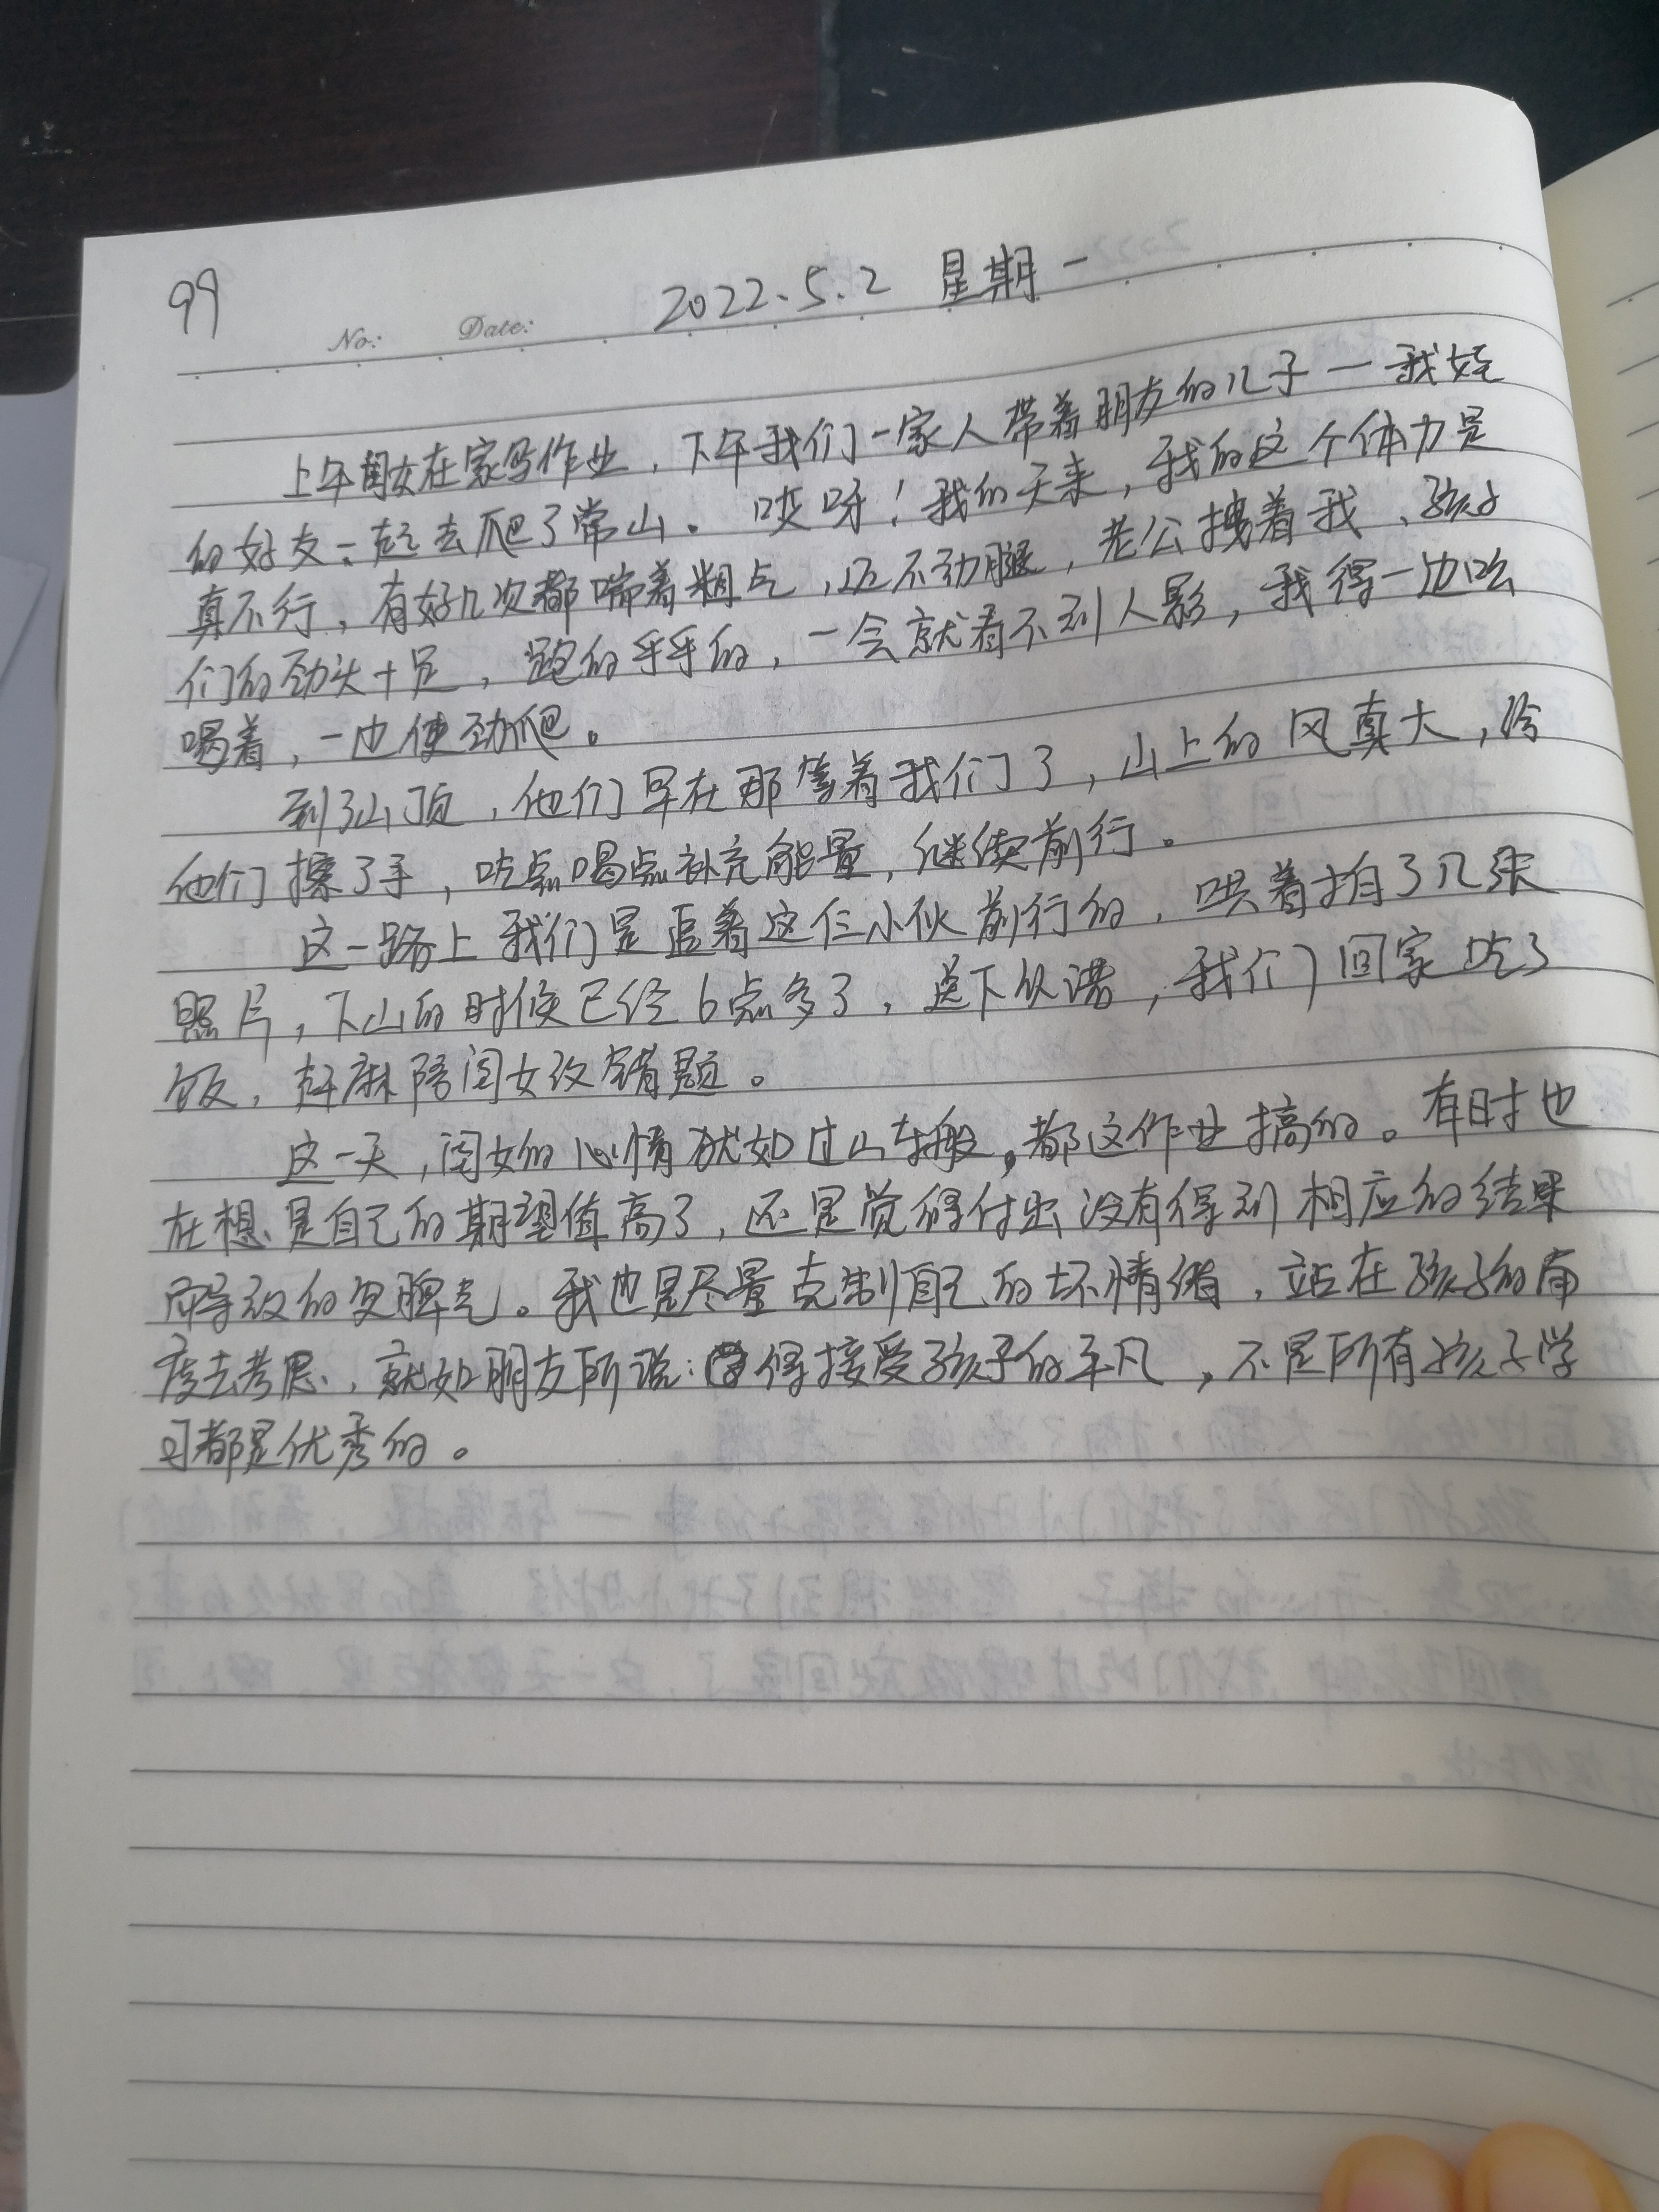 99
No: Date: 2022.5.2 星期一
上午闺女在家写作业，下午我们一家人带着朋友的儿子一我娃
的好友一起去爬了常山。哎呀！我的天来，我的这个体力是
真不行，有好几次都喘着粗气，迈不动腿，老公拽着我，孩子
们的劲头十足，跑的乎乎的，一会就看不到人影，我得一边吆
喝着，一边使劲爬。
到了山顶，他们早在那等着我们了，山上的风真大，给
他们擦了手，吃点喝点补充能量，继续前行。
这一路上我们是追着这仨小伙前行的，哄着拍了几张
照片，下山的时候已经6点多了，送下，我们回家吃了
饭，赶麻陪闺女改错题。
这一天，闺女的心情犹如过山车般，都这作业搞的。有时也
在想是自己的期望值高了，还是觉得付出没有得到相应的结果
而导致的发脾气。我也是尽量克制自己的坏情绪，站在孩子的角
度去考虑，就如朋友所说：得接受孩子的平凡，不是所有孩子学
习都是优秀的。